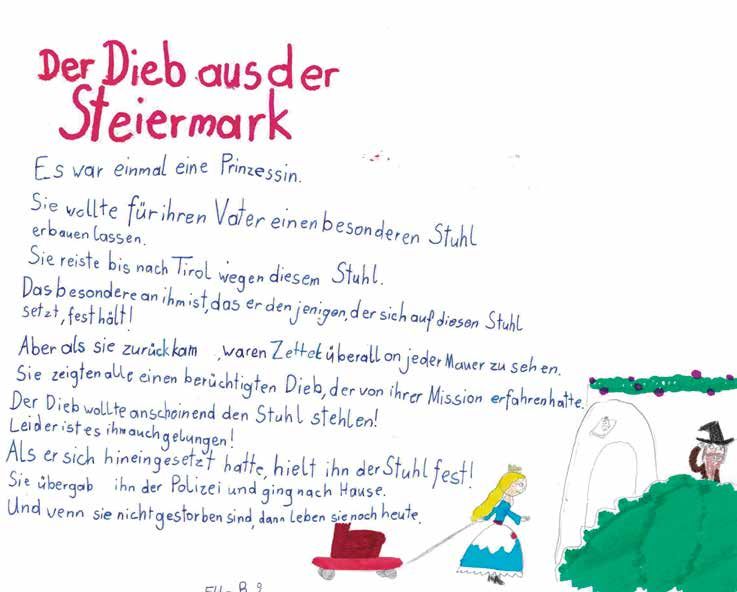 Der Dieb aus der
Steiermark
Es war einmal eine Prinzessin.
Sie wollte für ihren Vater einen besonderen Stuhl
erbauen lassen.
Sie reiste bis nach Tirol wegen diesem Stuhl.
Das besondere an ihm ist, das er den jenigen, der sich auf diesen Stuhl
setzt, fest hält!
Aber als sie zurück kam, waren Zettel überall an jeder Mauer zu sehen.
Sie zeigten alle einen berüchtigten Dieb, der von ihrer Mission erfahren hatte.
Der Dieb wollte anscheinend den Stuhl stehlen!
Leider ist es ihm auch gelungen!
Als er sich hineingesetzt hatte, hielt ihn der Stuhl fest!
Sie übergab ihn der Polizei und ging nach Hause.
Und venn sie nicht gestorben sind, dann leben sie noch heute.